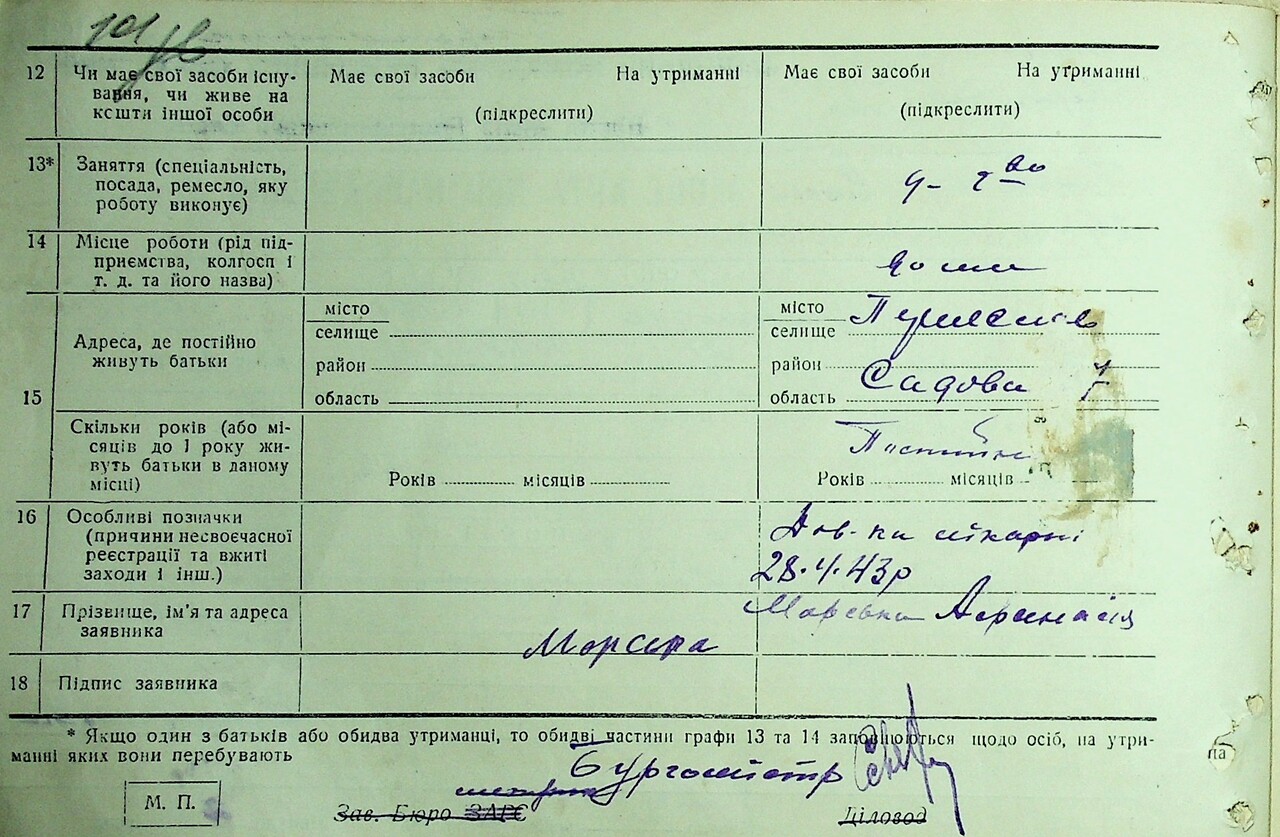 12 Чи має свої засоби існу-
вання, чи живе на
кошти іншої особи
Має свої засоби На утриманні
(підкреслити)
Має свої засоби На утриманні
(підкреслити)
13* Заняття (спеціальність,
посада, ремесло, яку
роботу виконує)
14 Місце роботи (рід під-
приємства, колгосп і
т. д. та його назва)
15 Адреса, де постійно
живуть батьки
місто
селище
район
область
місто
селище
район
область Садова
Скільки років (або мі-
сяців до 1 року жи-
вуть батьки в даному
місці)
Років місяців
Років місяців
16 Особливі позначки
(причини несвоєчасної
реєстрації та вжиті
заходи і інш.)
Дов-ка лікарні
28.4.43р
17 Прізвище, ім'я та адреса
заявника
18 Підпис заявника
* Якщо один з батьків або обидва утриманці, то обидві частини графи 13 та 14 заповнюються щодо осіб, на утри-
манні яких вони перебувають
Бургомістр
М. П.
Зав. Бюро ЗАГС Діловод